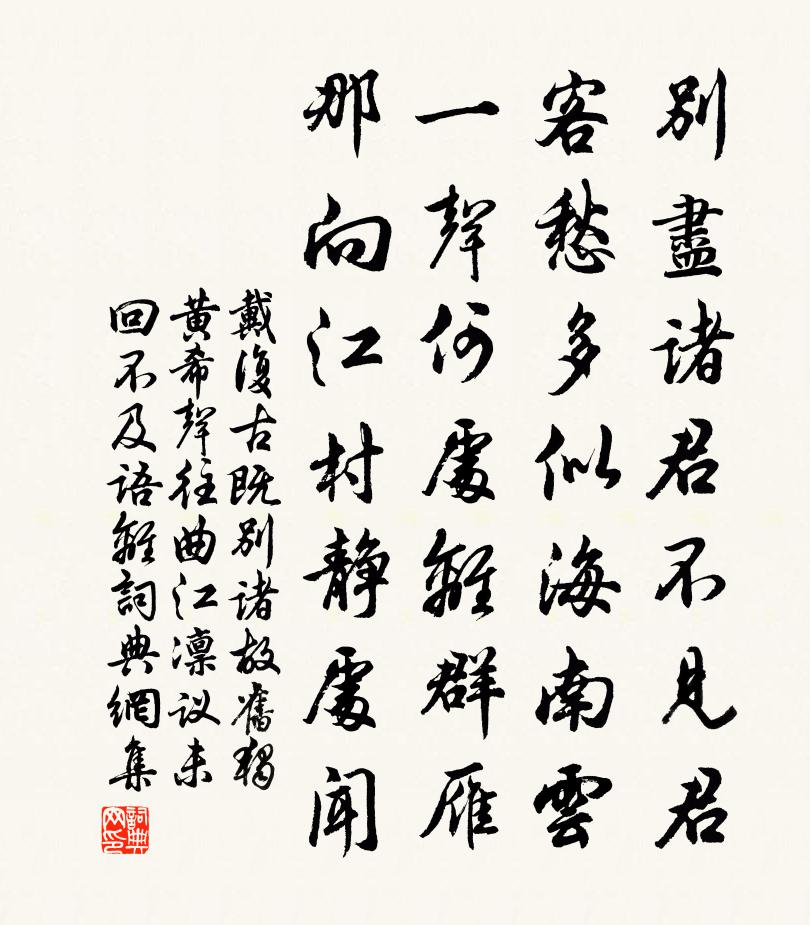 別盡諸君不見君
客愁多似海南雲
一聲何處離群雁
那向江村静處聞
戴復古既别諸故舊獨
黃希聲往曲江凛议未
回不及語離詞典網集
詞典网印